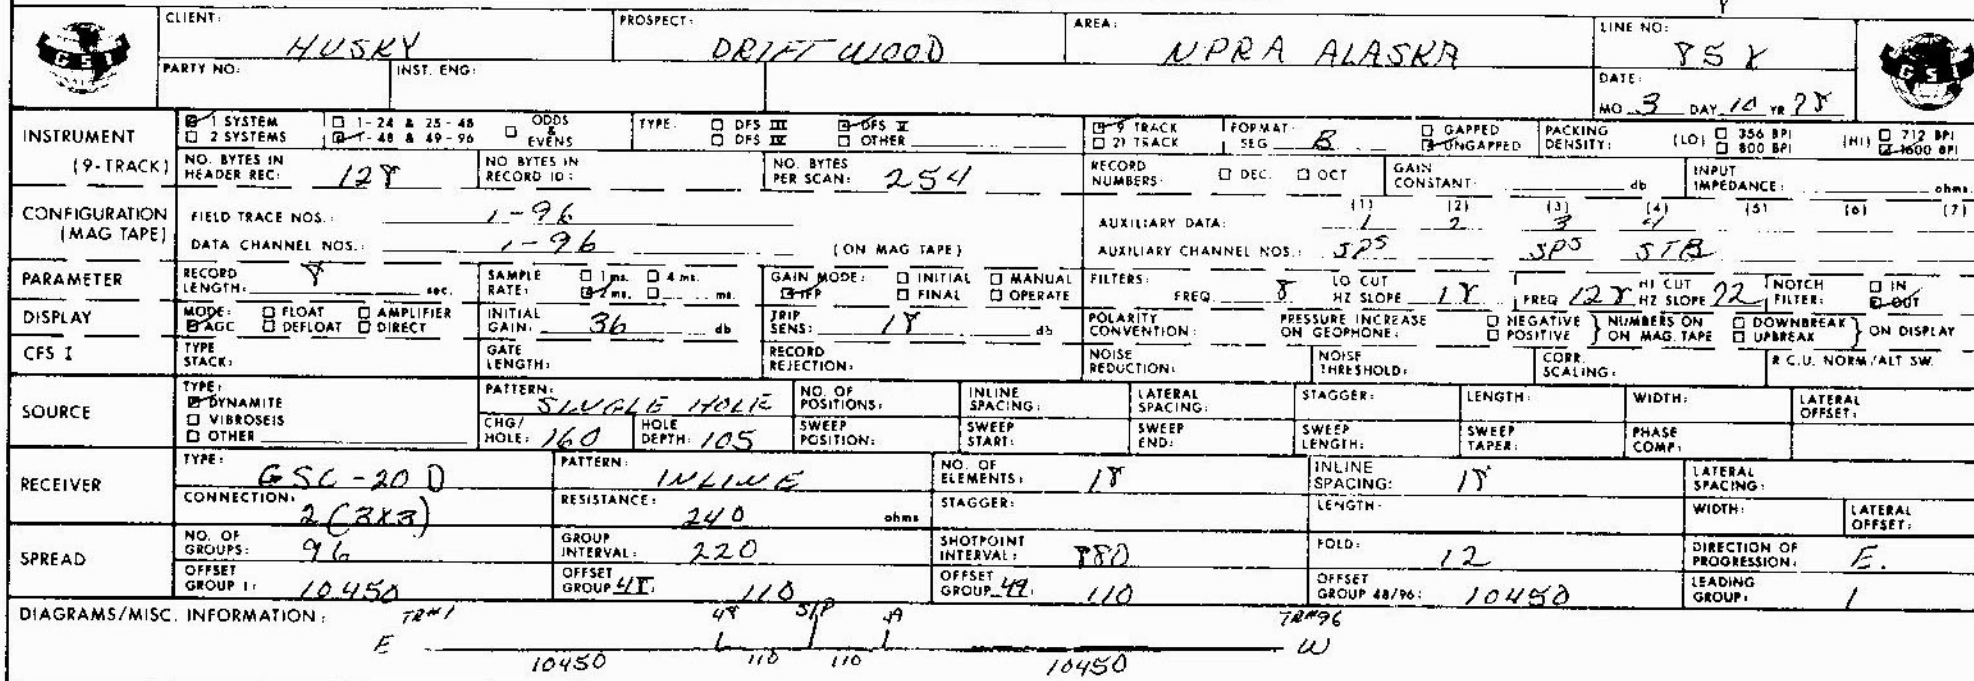 CLIENT: HUSKY PROSPECT: DRIFTWOOD AREA: NPRA ALASKA LINE NO: 85X
GSI GSI
PARTY NO: INST. ENG: DATE: MO. 3 DAY 10 YR 78
INSTRUMENT (9-TRACK)
☑ 1 SYSTEM ☐ 2 SYSTEMS ☐ 1-24 & 25-48 ☑ 1-48 & 49-96 ☐ ODDS & EVENS TYPE: ☐ DFS III ☐ DFS IV ☑ DFS V ☐ OTHER ☑ 9 TRACK ☐ 21 TRACK FORMAT: SEG B ☐ GAPPED ☑ UNGAPPED PACKING DENSITY: (LO) ☐ 356 BPI ☐ 800 BPI (HI) ☐ 712 BPI ☑ 1600 BPI
NO. BYTES IN HEADER REC: 128 NO BYTES IN RECORD ID: NO. BYTES PER SCAN: 254 RECORD NUMBERS: ☐ DEC. ☐ OCT GAIN CONSTANT: db INPUT IMPEDANCE: ohms.
CONFIGURATION (MAG TAPE)
FIELD TRACE NOS.: 1-96 AUXILIARY DATA: (1) 1 (2) 2 (3) 3 (4) 4 (5) (6) (7)
DATA CHANNEL NOS.: 1-96 (ON MAG TAPE) AUXILIARY CHANNEL NOS.: SPS SPS STB
PARAMETER RECORD LENGTH: 8 sec. SAMPLE RATE: ☐ 1 ms. ☐ 4 ms. ☑ 2 ms. ☐ ms. GAIN MODE: ☐ INITIAL ☐ MANUAL ☑ IFP ☐ FINAL ☐ OPERATE FILTERS: FREQ 8 LO CUT HZ SLOPE 18 FREQ 128 HI CUT HZ SLOPE 72 NOTCH FILTER: ☐ IN ☑ OUT
DISPLAY MODE: ☐ FLOAT ☐ AMPLIFIER ☑ AGC ☐ DEFLOAT ☐ DIRECT INITIAL GAIN: 36 db TRIP SENS: 18 db POLARITY CONVENTION: PRESSURE INCREASE ON GEOPHONE: ☐ NEGATIVE ☐ POSITIVE } NUMBERS ON MAG. TAPE ☐ DOWNBREAK ☐ UPBREAK } ON DISPLAY
CFS I TYPE STACK: GATE LENGTH: RECORD REJECTION: NOISE REDUCTION: NOISE THRESHOLD: CORR. SCALING: R.C.U. NORM/ALT SW.
SOURCE TYPE: ☑ DYNAMITE ☐ VIBROSEIS ☐ OTHER PATTERN: SINGLE HOLE NO. OF POSITIONS: INLINE SPACING: LATERAL SPACING: STAGGER: LENGTH: WIDTH: LATERAL OFFSET:
CHG/HOLE: 160 HOLE DEPTH: 105 SWEEP POSITION: SWEEP START: SWEEP END: SWEEP LENGTH: SWEEP TAPER: PHASE COMP:
RECEIVER TYPE: GSC-20 D PATTERN: INLINE NO. OF ELEMENTS: 18 INLINE SPACING: 18 LATERAL SPACING:
CONNECTION: 2(3X3) RESISTANCE: 240 ohms STAGGER: LENGTH: WIDTH: LATERAL OFFSET:
SPREAD NO. OF GROUPS: 96 GROUP INTERVAL: 220 SHOTPOINT INTERVAL: 880 FOLD: 12 DIRECTION OF PROGRESSION: E.
OFFSET GROUP 1: 10450 OFFSET GROUP 48: 110 OFFSET GROUP 49: 110 OFFSET GROUP 48/96: 10450 LEADING GROUP: 1
DIAGRAMS/MISC. INFORMATION: TR#1 48 S/P TR#96
E W
10450 110 110 10450